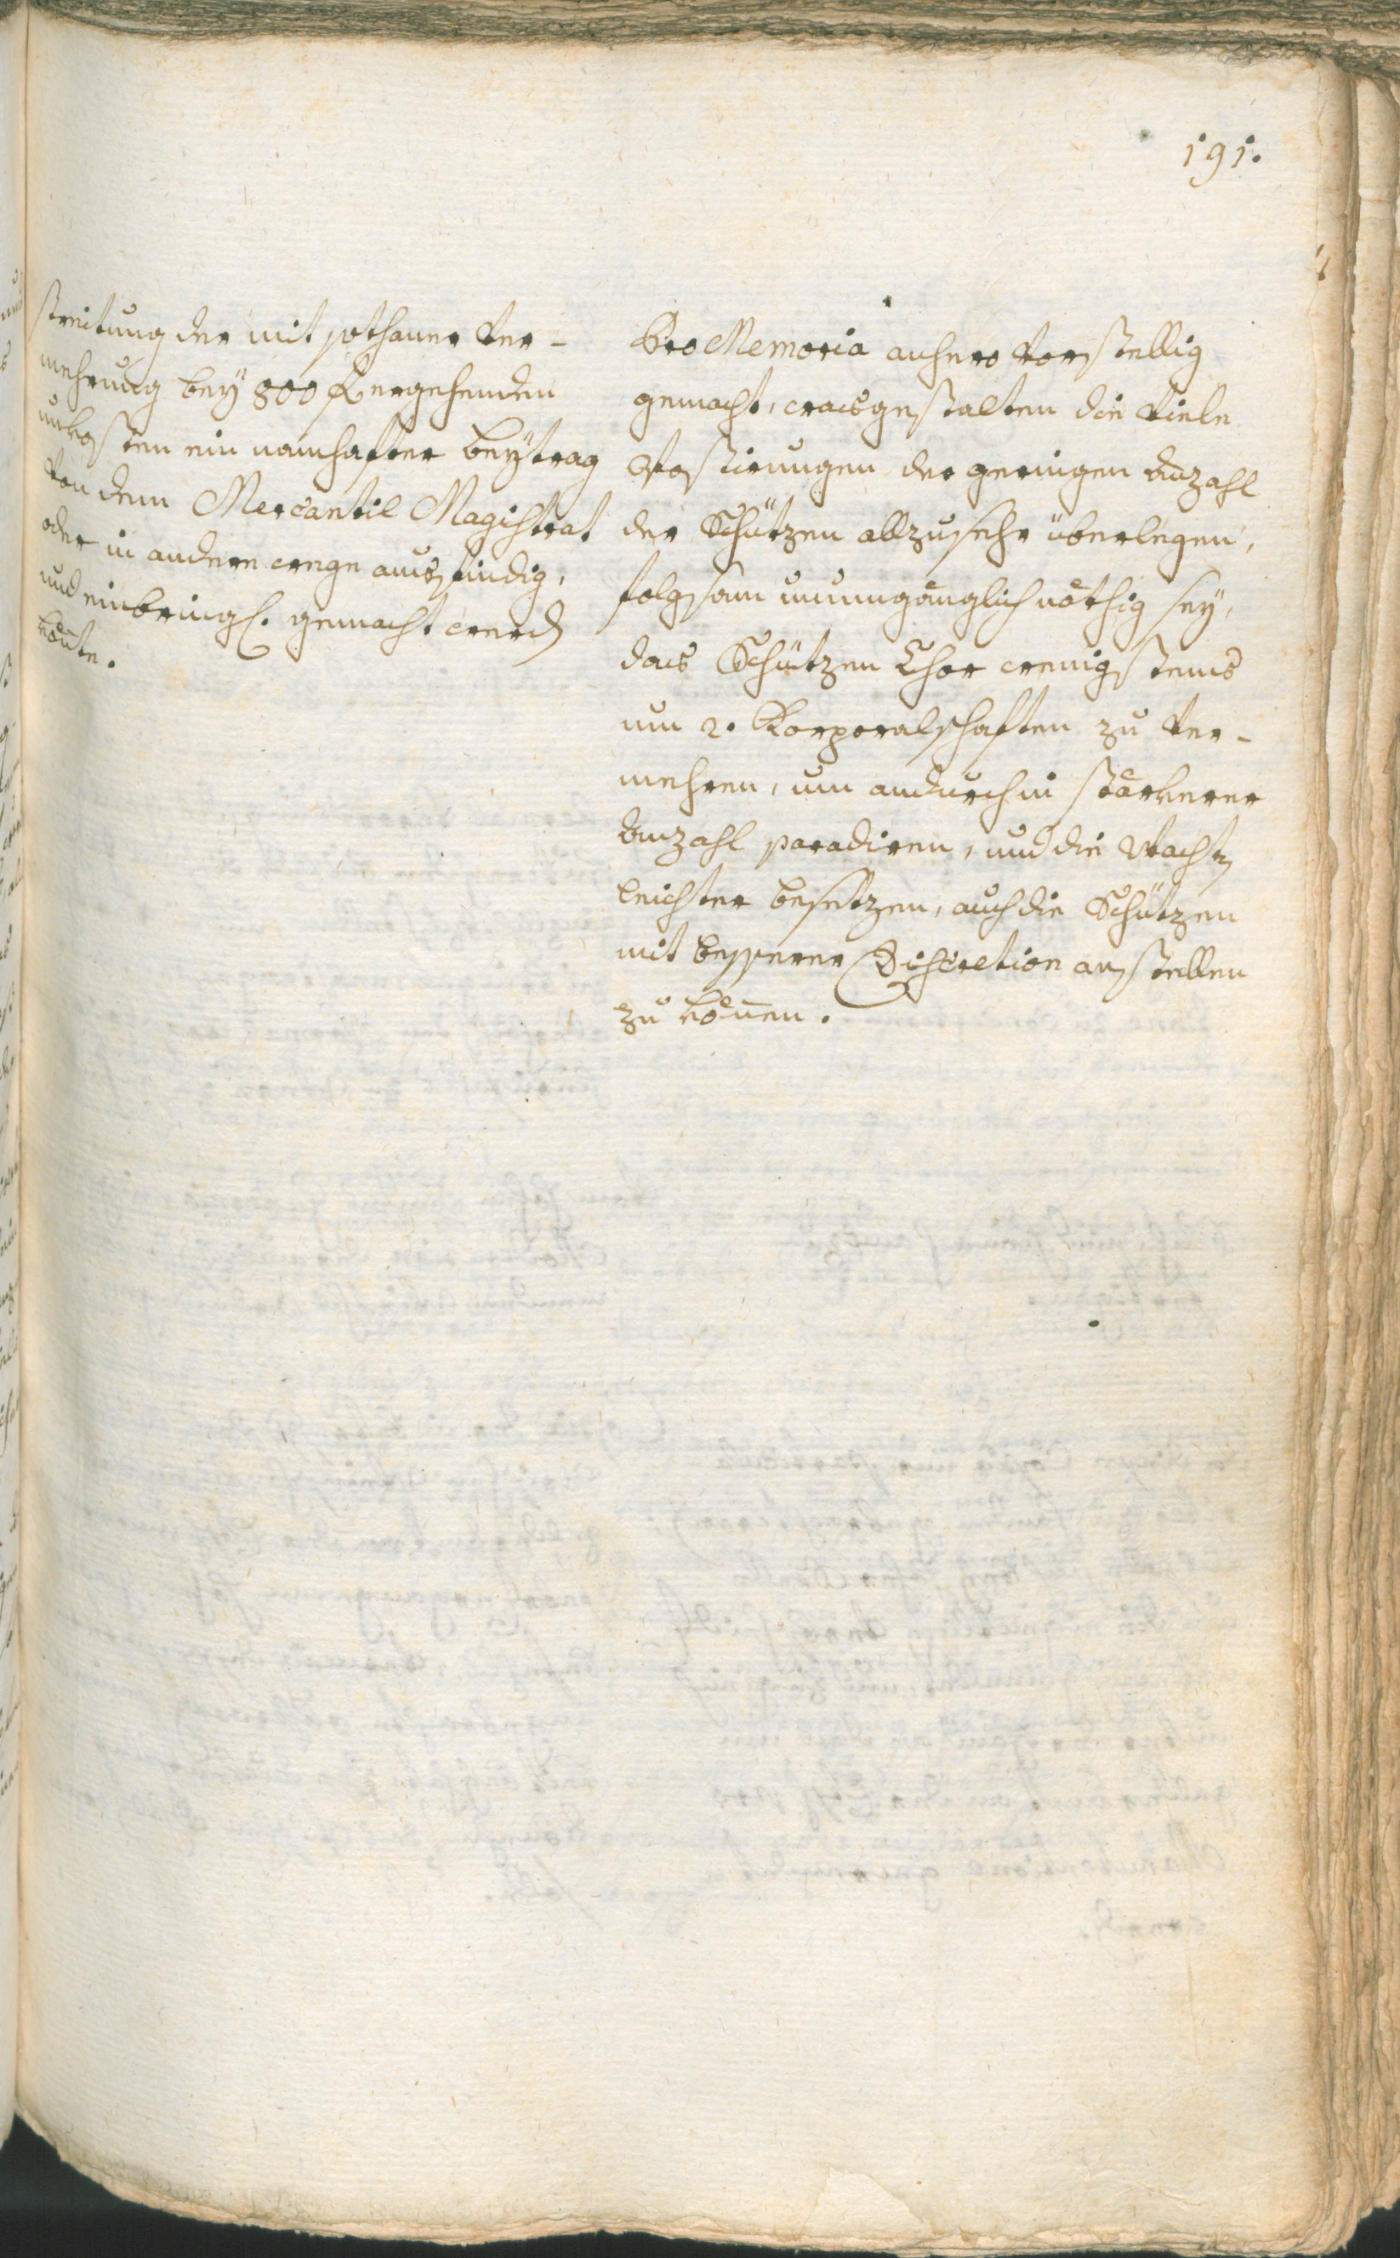 191.
streitung der mit sothaner Ver-
mehrung bey 800 f. ergehenden
unkosten ein namhafter beytrag
von dem Mercantil Magistrat
oder in andere weege ausfindig,
und einbringl. gemacht werden
könte.
Pro Memoria anhero vorstellig
gemacht, wasgestalten die viele
Postirungen der geringen Anzahl
der Schützen allzusehr überlegen,
folgsam unumgänglich nöthig sey,
das Schützen Chor wenigstens
um 2. Korporalschaften zu ver-
mehren, um andurch in stärkerer
Anzahl paradiren, und die Wachten
leichter besetzen, auch die Schützen
mit besserer Discretion anstellen
zu können.